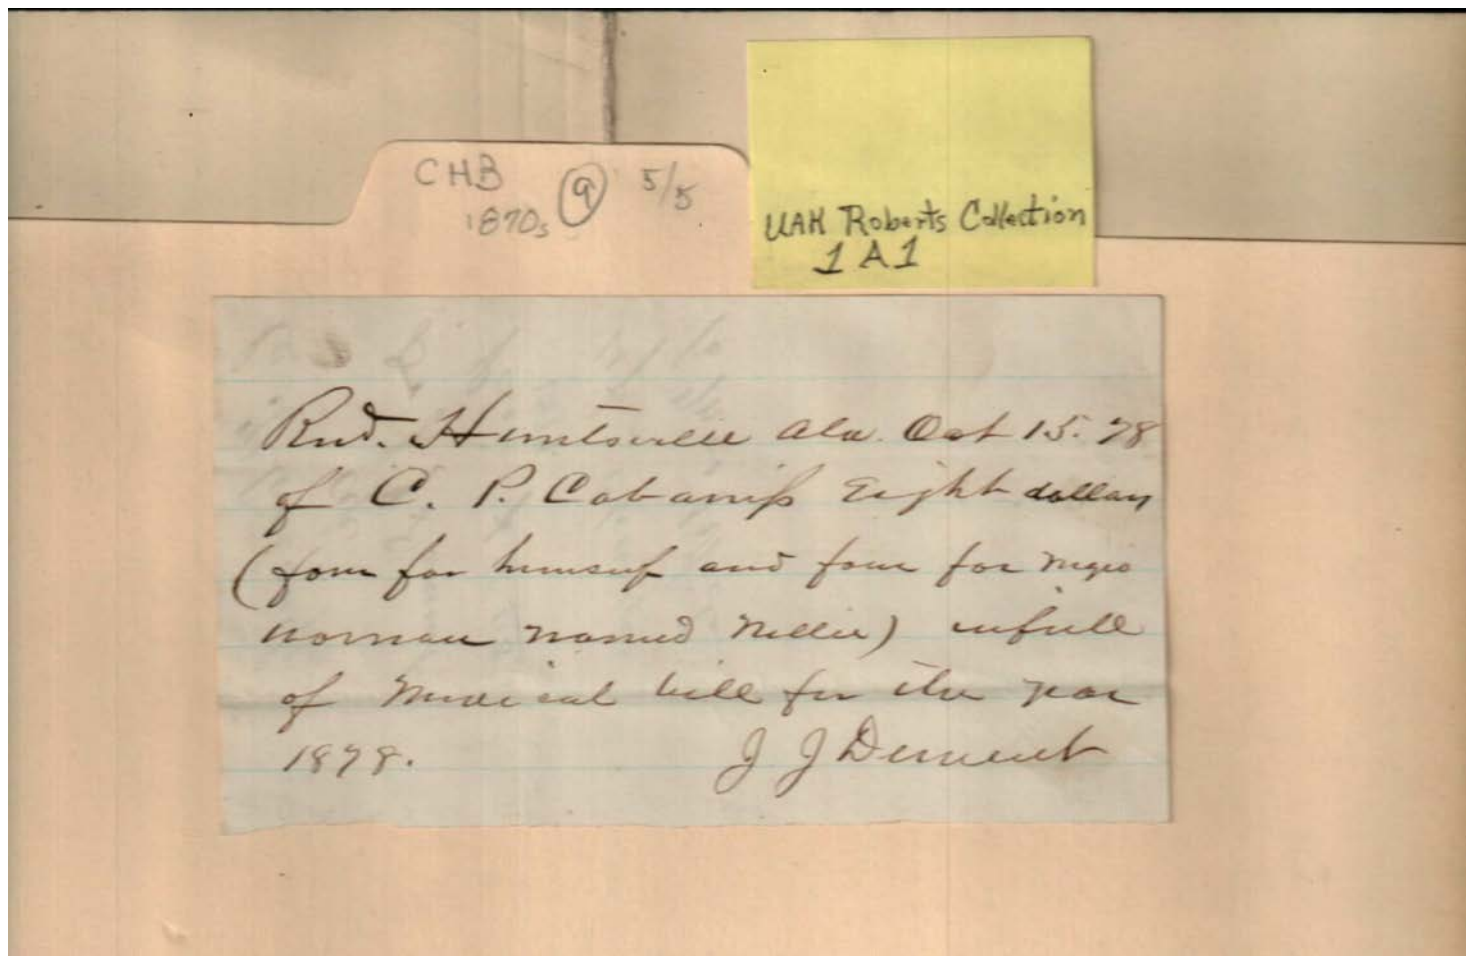 CHB
1870s
9
5/5
UAH Roberts Collection
1A1
Recd. Huntsville Ala. Oct 15. 78
of C. P. Cabaniss Eight dollars
(four for himself and four for negro
woman named Nellie) in full
of Medical bill for the year
1878. J J Dement